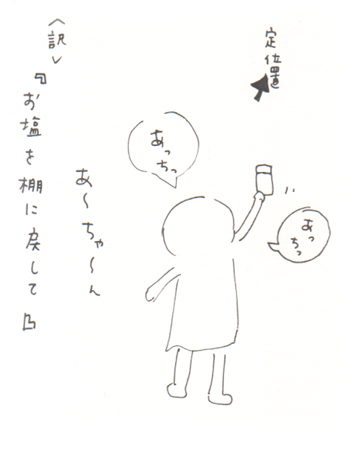 定位置
あっちっ
あっちっ
あ～ちゃ～ん
〈訳〉
『お塩を棚に戻して』